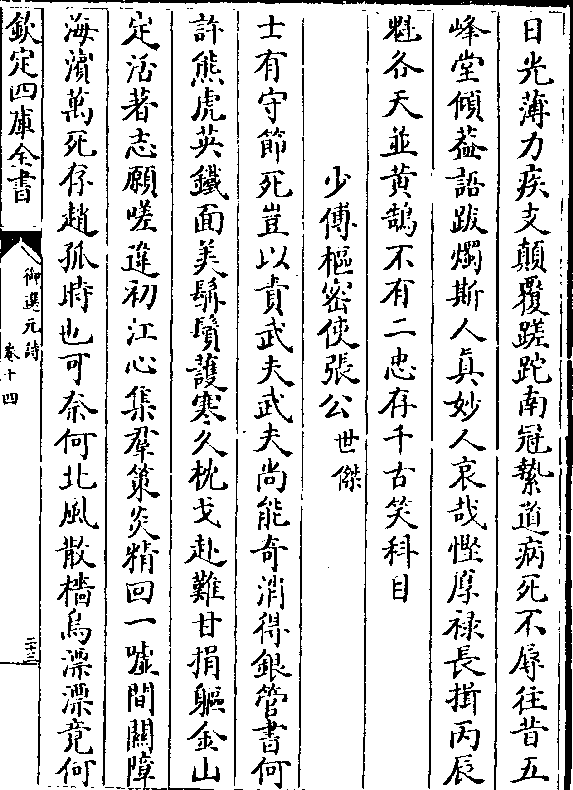 日光薄力疾支顛覆蹉跎南冠縶道病死不辱往昔五
峰堂傾葢語跋燭斯人真妙人哀哉慳厚祿長揖丙辰
魁各天並黄鵠不有二忠存千古笑科目
少傅樞密使張公世傑
士有守節死豈以責武夫武夫尚能奇消得銀管書何
許熊虎英鐵面美鬍鬚護寒久枕戈赴難甘捐軀金山
定活著志願嗟違初江心集羣策炎精回一噓間關障
海濵萬死存趙孤時也可奈何北風散檣烏漂漂竟何
欽定四庫全書
御選元詩
卷十四
二十三